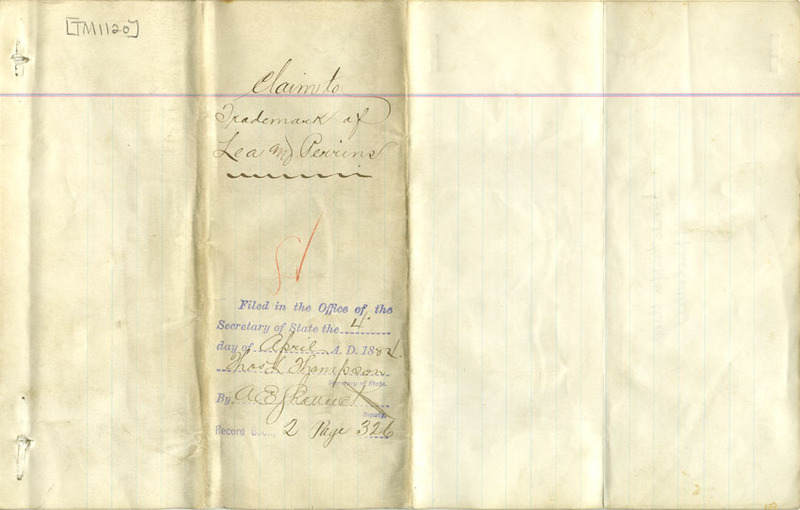 [TM1120]
Claim to
Trademark of
Lea & Perrins
Filed in the Office of the
Secretary of State the 4
day of April A. D. 1884.
Thos L Thompson
Secretary of State.
By A E
Deputy.
Record Book 2 Page 326